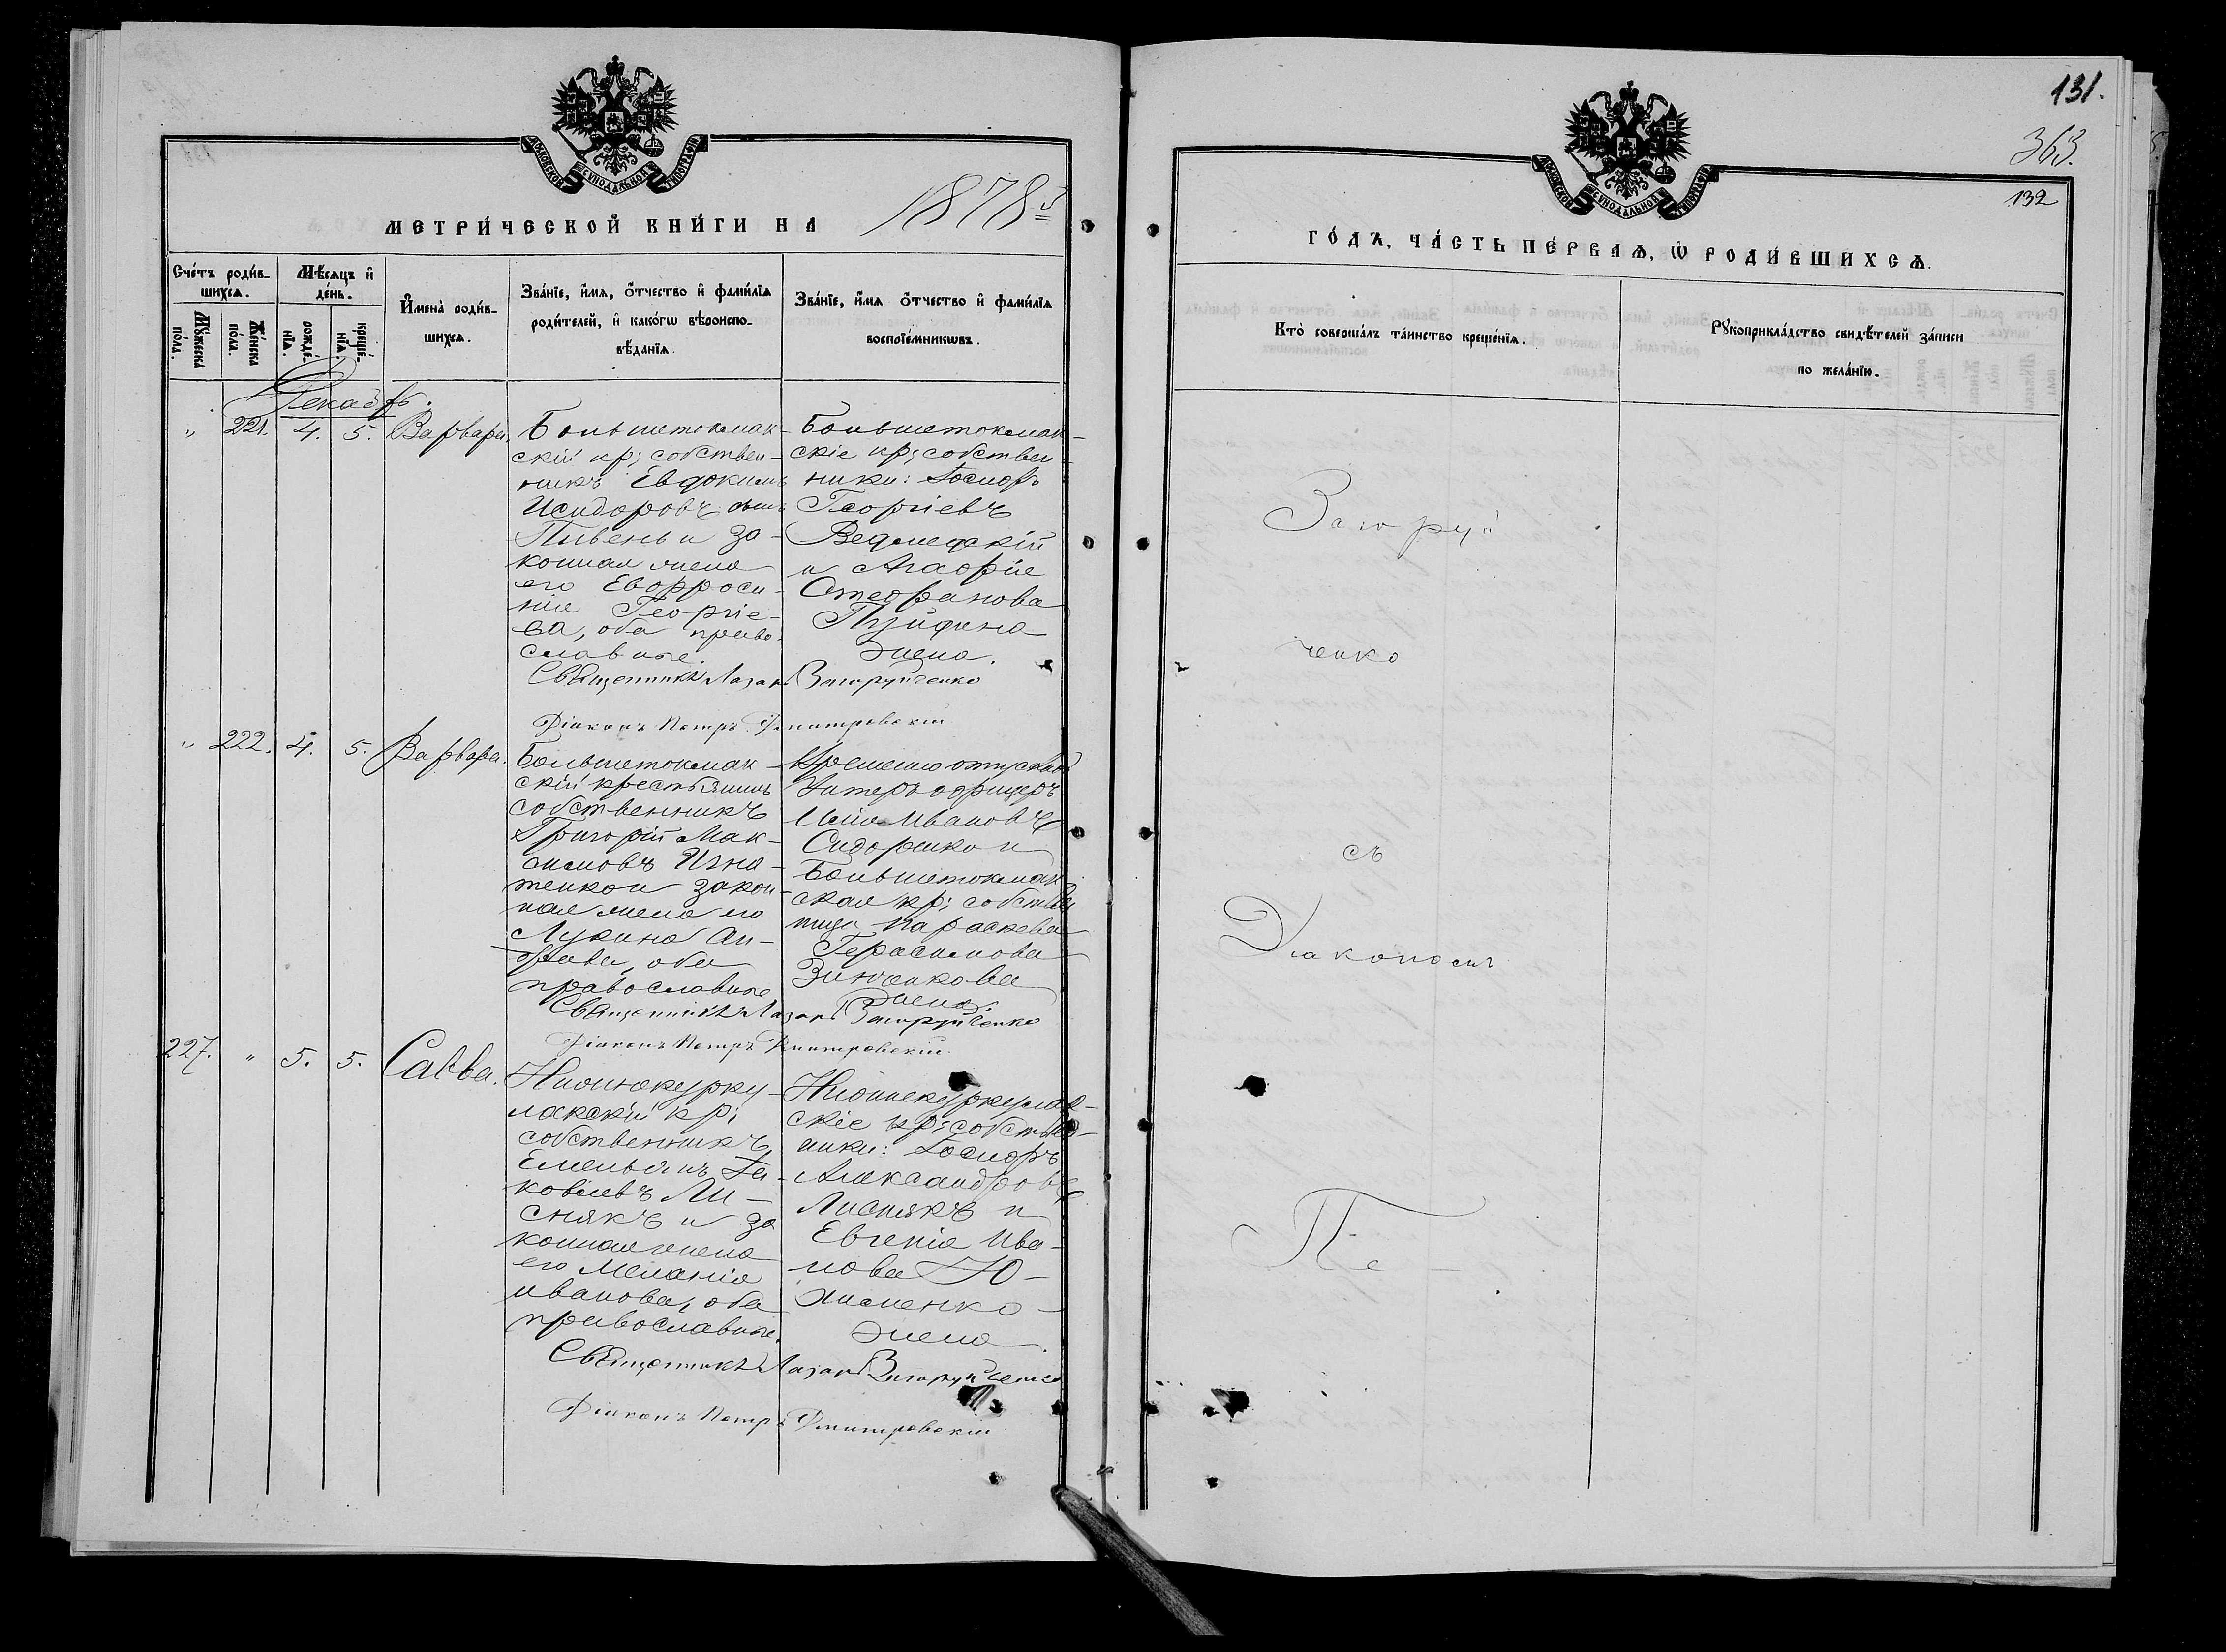 МОСКОВСКОЙ СУНОДАЛЬНОЙ ТИПОГРАФІИ
МЕТРИ́ЧЕСКОЙ КНИ́ГИ НА 1878 й
Сче́тъ роди́в-
шихсѧ.
Мѣ́сѧцъ и҆
де́нь.
Мꙋ́жеска по́ла.
Же́нска по́ла.
рожде́-
нїѧ.
креще́-
нїѧ.
И҆мена̀ роди́в-
шихсѧ.
Зва́нїе, и҆́мѧ, ѻ҆́тчество и҆ фами́лїѧ
роди́телей, и҆ како́гѡ вѣроиспо-
вѣ́данїѧ.
Зва́нїе, и҆́мѧ ѻ҆́тчество и҆ фами́лїѧ
воспрїе́мникѡвъ.
Декабрь.
" 221. 4. 5. Варвара.
Большетокмак-
скій кр; собствен-
никъ Евдокимъ
Исидоровъ сынъ
Пивень и за-
конная жена
его Евфроси-
нія Георгіе-
ва, оба право-
славные.
Большетокмак-
скіе кр; собствен-
ники: Іосифъ
Георгіевъ
Ведмецкій
и Агафія
Стефанова
жена.
Священникъ Лазарь Загоруйченко
Діаконъ Петръ Дмитровскій
" 222. 4. 5. Варвара.
Большетокмак-
скій крестьянинъ
собственникъ
Григорій Мак-
симовъ Игна-
тенко и закон-
ная жена его
Лукина Ан-
оба
православные
Временно отпускной
Унтеръ офицеръ
Ивановъ
Сидоренко и
Большетокмак
ская кр; собствен
ница Параскева
Герасимова
Зинченкова
жена.
Священникъ Лазарь Загоруйченко
Діаконъ Петръ Дмитровскій
227. " 5. 5. Савва.
Нижнекурку-
лакскій кр;
собственникъ
Емельянъ Іа-
ковлевъ Ли-
снякъ и за
конная жена
его Меланія
Иванова, оба
православные.
Нижнекуркулак-
скіе кр; собствен-
ники: Іосифъ
Александровъ
Лиснякъ и
Евгенія Ива-
нова Ю-
хименко-
жена.
Священникъ Лазарь Загоруйченко
Діаконъ Петръ Дмитровскій
131.
363.
132
МОСКОВСКОЙ СУНОДАЛЬНОЙ ТИПОГРАФІИ
ГО́ДЪ, ЧА́СТЬ ПЕ́РВАѦ, Ѡ҆ РОДИ́ВШИХСѦ.
Кто̀ соверша́лъ та́инство креще́нїѧ.
Рꙋкоприкла́дство свидѣ́телей за́писи
по жела́нїю.
Загоруй
ченко
съ
Діакономъ
Пе-